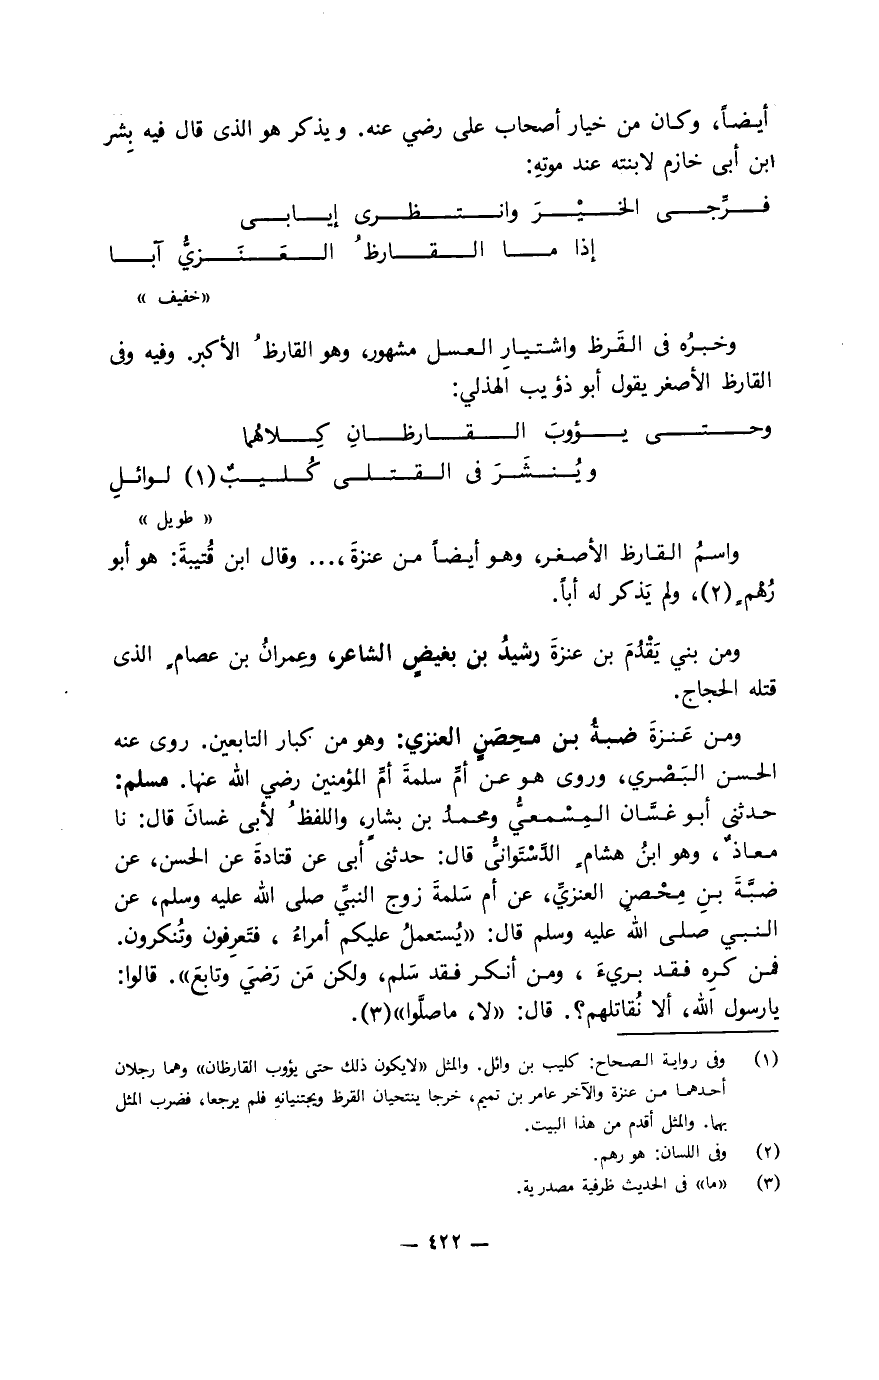 أيضاً، وكان من خيار أصحاب على رضي عنه. ويذكر هو الذى قال فيه بِشر
ابن أبى خازم لابنته عند موتهِ:
فـرِّجـى الخـيْـرَ وانـتـظـرى إيـابـى
إذا مـا الـقـارظُ الـعَـنَـزيُّ آبـا
«خفيف»
وخبرُه فى القَرظ واشتيارِ العسل مشهور، وهو القارظُ الأكبر. وفيه وفى
القارظ الأصغر يقول أبو ذؤيب الهذلي:
وحـتـى يـؤوبَ الـقـارظـانِ كِـلاهُما
ويُـنـشَـرَ فى القـتـلى كُـلـيـبٌ(١) لـوائـلِ
«طويل»
واسمُ القارظ الأصغر، وهو أيضاً من عنزةَ،... وقال ابن قُتيبةَ: هو أبو
رُهْمٍ(٢)، ولم يَذكر له أباً.
ومن بني يَقْدُمَ بن عنزةَ رشيدُ بن بغيضٍ الشاعر، وعِمرانُ بن عصامٍ الذى
قتله الحجاج.
ومن عَنزةَ ضبةُ بن محِصَنٍ العنزي: وهو من كبار التابعين. روى عنه
الحسن البَصْري، وروى هو عن أمِّ سلمةَ أمِّ المؤمنين رضي الله عنها. مسلم:
حدثنى أبو غسَّان المِسْمعيُّ ومحمدُ بن بشارٍ، واللفظُ لأبى غسانَ قال: نا
معاذٌ، وهو ابنُ هشامٍ الدَّسْتَوانىُّ قال: حدثنى أبى عن قتادةَ عن الحسن، عن
ضبَّةَ بنِ مِحْصنٍ العنزيِّ، عن أم سَلمةَ زوج النبيِّ صلى الله عليه وسلم، عن
النبي صلى الله عليه وسلم قال: «يُستعملُ عليكم أمراءُ، فتَعرِفون وتُنكرون.
فمن كرِه فقد بريءَ، ومن أنكر فقد سَلم، ولكن مَن رَضيَ وتابعَ». قالوا:
يارسول الله، ألا نُقاتلهم؟. قال: «لا، ماصلَّوا»(٣).
(١) وفى رواية الصحاح: كليب بن وائل. والمثل «لايكون ذلك حتى يؤوب القارظان» وهما رجلان
أحدهما من عنزة والآخر عامر بن تميم، خرجا ينتحيان القرظ ويجتنيانهِ فلم يرجعا، فضرب المثل
بهما. والمثل أقدم من هذا البيت.
(٢) وفى اللسان: هو رهم.
(٣) «ما» فى الحديث ظرفية مصدرية.
— ٤٢٢ —